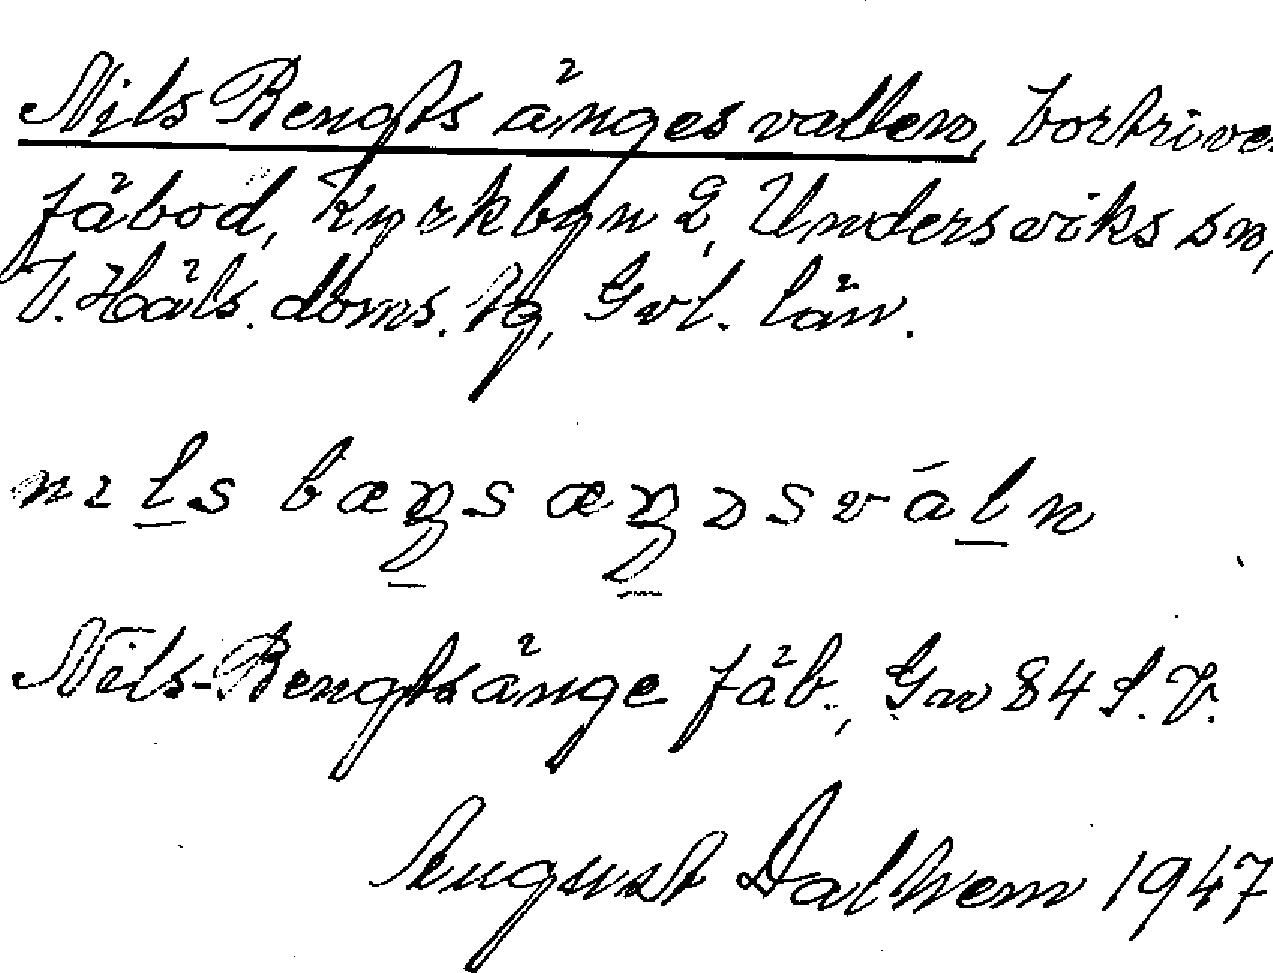 Nils Bengts änges vallen, bortriven
fäbod, Kyrkbyn 2, Undersviks sn,
V. Häls. doms. hg, Gvl. län.
nɪls bæŋs æŋɔsváln
Nils-Bengtsänge fäb., Gw 84 S. V.
August Dalhem 1947